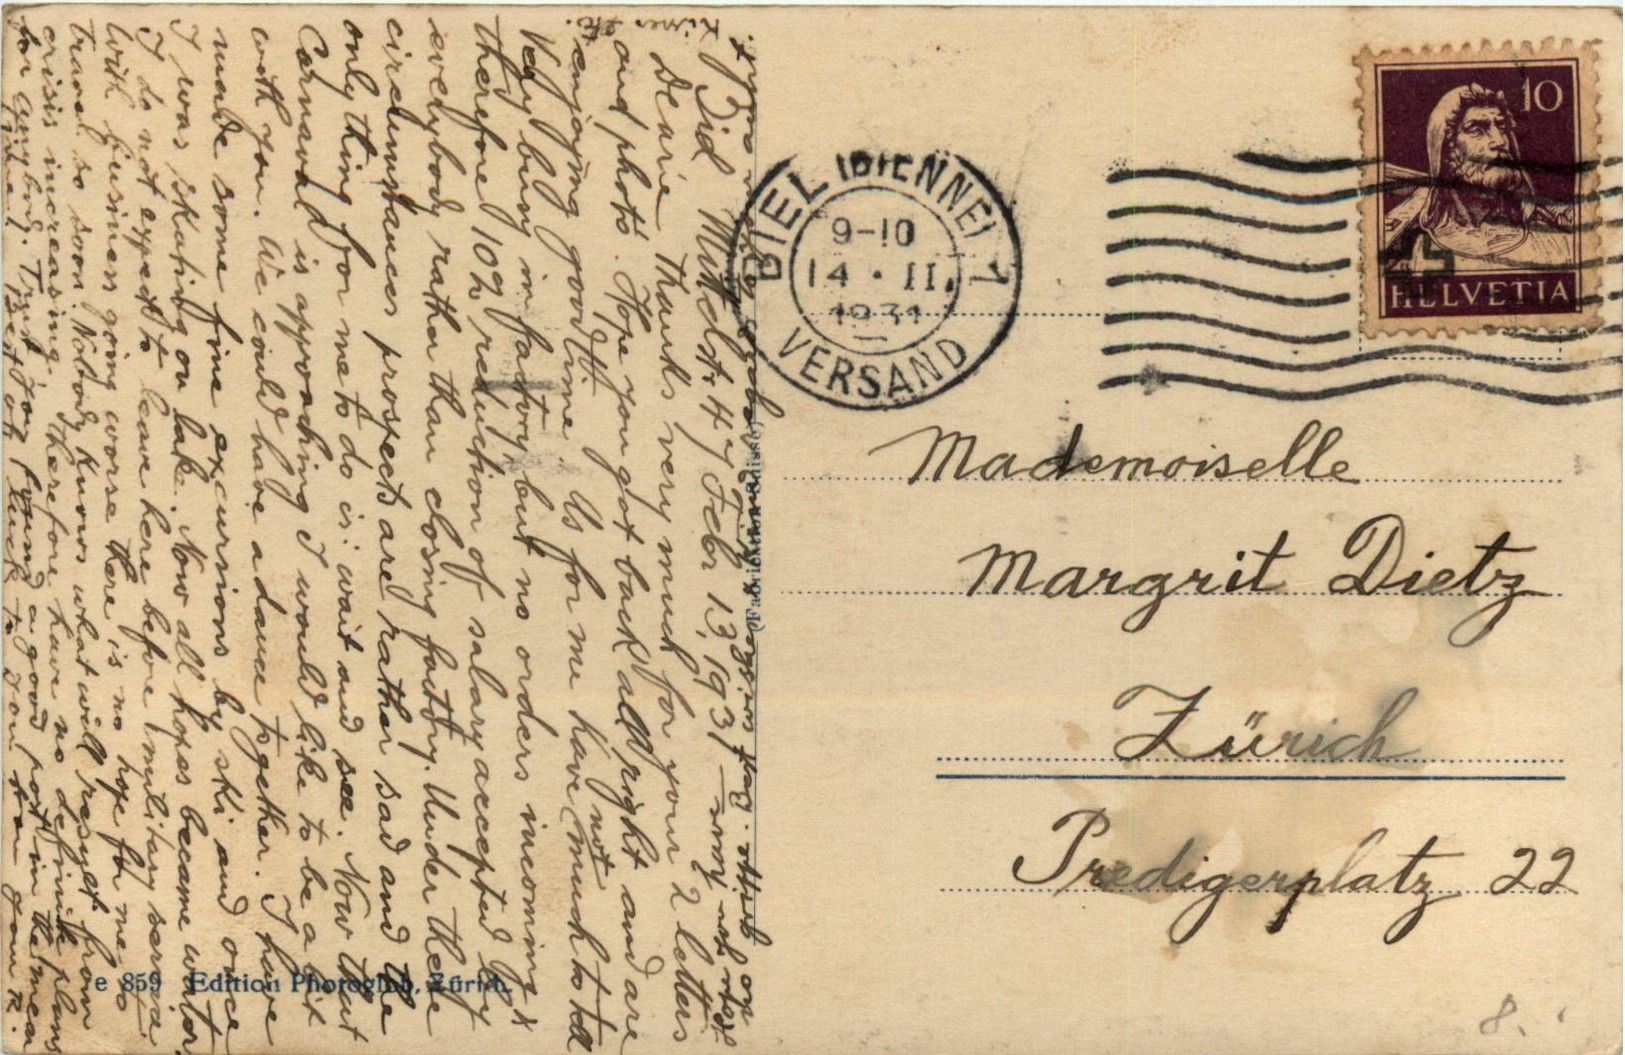 Biel, Mittelstr. 47 Febr 13, 1931
Dearie Thanks very much for your 2 letters
and photo. Hope you got back all right and are
enjoying good time. As for me have not much to tell
Very busy in factory, but no orders incoming &
therefore 10% reduction of salary accepted by
everybody rather than closing factory. Under these
circumstances prospects are rather sad and the
only thing for me to do is: wait and see. Now that
Carnaval is approaching I would like to be a bit
with you. We could have a dance together. I have
made some fine excursions by ski and once
I was skating on lake. Now all hopes became water
I do not expect to leave here before military service.
With business going worse there is no hope for me to
travel so soon. Nobody knows what will result from
crisis increasing, therefore have no definite plans
for anybody. Trust you found a good post in the mean
time! Best of luck to you from your R.
kisses etc.
BIEL (BIENNE) 1
9-10
14 . II.
1931
VERSAND
10
HELVETIA
Mademoiselle
Margrit Dietz
Zürich
Predigerplatz 22
e 859 Edition Photoglob, Zürich.
8.